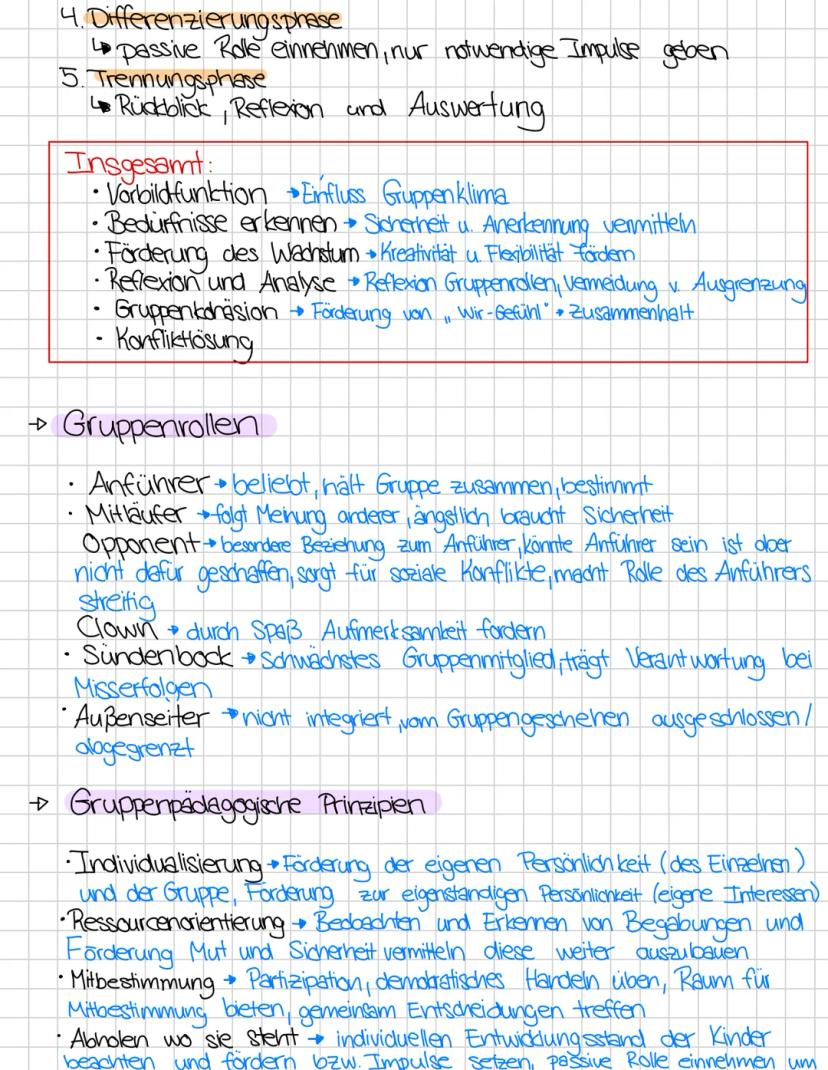 4. Differenzierungsphase
↳ passive Rolle einnehmen, nur notwendige Impulse geben
5. Trennungsphase
↳ Rückblick, Reflexion und Auswertung
Insgesamt:
• Vorbildfunktion → Einfluss Gruppenklima
• Bedürfnisse erkennen → Sicherheit u. Anerkennung vermitteln
• Förderung des Wachstum → Kreativität u. Flexibilität fördern
• Reflexion und Analyse → Reflexion Gruppenrollen, Vermeidung v. Ausgrenzung
• Gruppenkohäsion → Förderung von „Wir-Gefühl" → Zusammenhalt
• Konfliktlösung
→ Gruppenrollen
• Anführer → beliebt, hält Gruppe zusammen, bestimmt
• Mitläufer → folgt Meinung anderer, ängstlich braucht Sicherheit
Opponent → besondere Beziehung zum Anführer, könnte Anführer sein ist aber
nicht dafür geschaffen, sorgt für soziale Konflikte, macht Rolle des Anführers
streitig
Clown → durch Spaß Aufmerksamkeit fordern
• Sündenbock → Schwächstes Gruppenmitglied, trägt Verantwortung bei
Misserfolgen
• Außenseiter → nicht integriert, vom Gruppengeschehen ausgeschlossen/
abgegrenzt
→ Gruppenpädagogische Prinzipien
• Individualisierung → Förderung der eigenen Persönlichkeit (des Einzelnen)
und der Gruppe, Förderung zur eigenständigen Persönlichkeit (eigene Interessen)
• Ressourcenorientierung → Beobachten und Erkennen von Begabungen und
Förderung Mut und Sicherheit vermitteln diese weiter auszubauen
• Mitbestimmung → Partizipation, demokratisches Handeln üben, Raum für
Mitbestimmung bieten, gemeinsam Entscheidungen treffen
• Abholen wo sie steht → individuellen Entwicklungsstand der Kinder
beachten und fördern bzw. Impulse setzen, passive Rolle einnehmen um